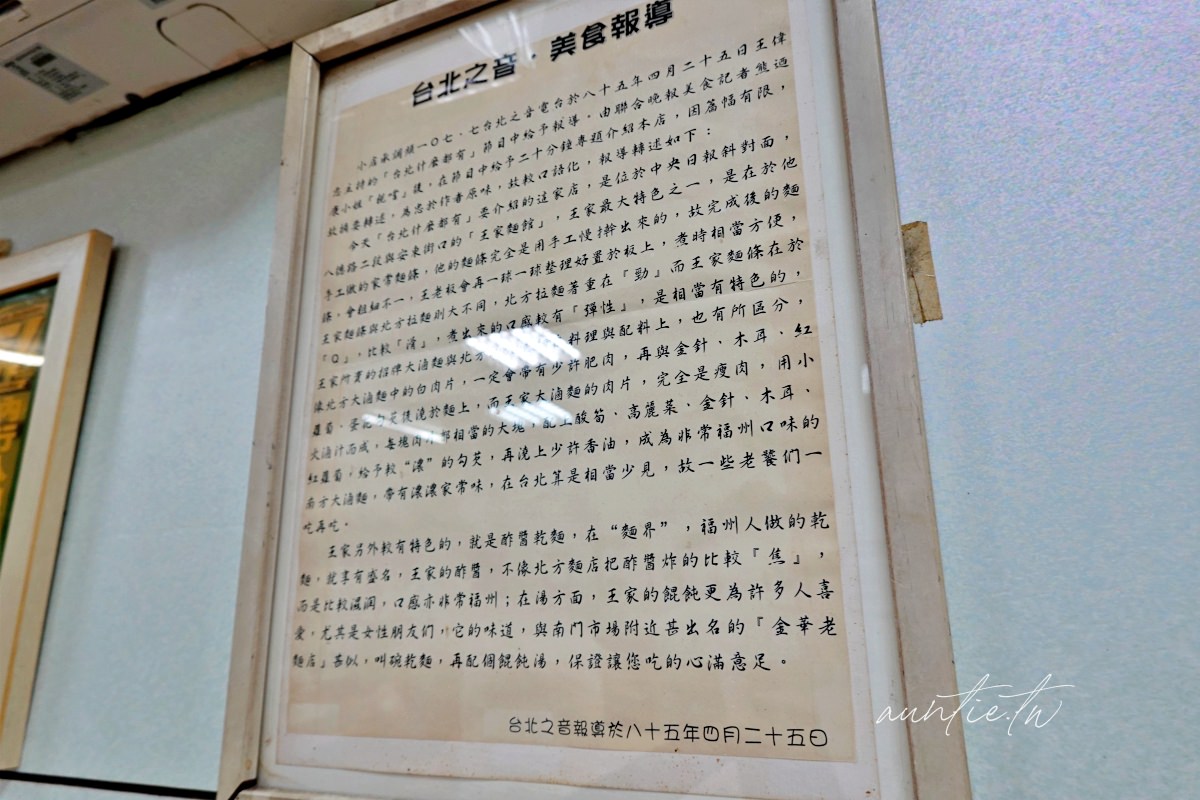 台北之音．美食報導
小店承調頻一〇七．七台北之音電台於八十五年四月二十五日王偉
忠主持的「台北什麼都有」節目中給予報導，由聯合晚報美食記者熊迺
康小姐「試嚐」後，在節目中給予二十分鐘專題介紹本店，因篇幅有限，
故摘要轉述，為忠於作者原味，故較口語化，報導轉述如下：
今天「台北什麼都有」要介紹的這家店，是位於中央日報斜對面，
八德路二段與安東街口的「王家麵館」，王家最大特色之一，是在於他
手工做的家常麵條，他的麵條完全是用手工慢慢擀出來的，故完成後的麵
條，會粗細不一，王老板會再一球一球整理好置於板上，煮時相當方便，
王家麵條與北方拉麵則大不同，北方拉麵著重在『勁』而王家麵條在於
『Q』，比較「滑」，煮出來的口感較有『彈性』，是相當有特色的，
王家所賣的招牌大滷麵與北方 料理與配料上，也有所區分，
像北方大滷麵中的白肉片，一定會帶有少許肥肉，再與金針、木耳、紅
蘿蔔、蛋花勾芡後澆於麵上，而王家大滷麵的肉片，完全是瘦肉，用小
火滷汁而成，每塊肉片都相當的大塊，配上酸筍、高麗菜、金針、木耳、
紅蘿蔔，給予較“濃”的勾芡，再澆上少許香油，成為非常福州口味的
南方大滷麵，帶有濃濃家常味，在台北算是相當少見，故一些老饕們一
吃再吃。
王家另外較有特色的，就是酢醬乾麵，在“麵界”，福州人做的乾
麵，就享有盛名，王家的酢醬，不像北方麵店把酢醬炸的比較『焦』，
而是比較滋潤，口感亦非常福州；在湯方面，王家的餛飩更為許多人喜
愛，尤其是女性朋友們，它的味道，與南門市場附近甚出名的『金華老
麵店』甚似，叫碗乾麵，再配個餛飩湯，保證讓您吃的心滿意足。
台北之音報導於八十五年四月二十五日
auntie.tw